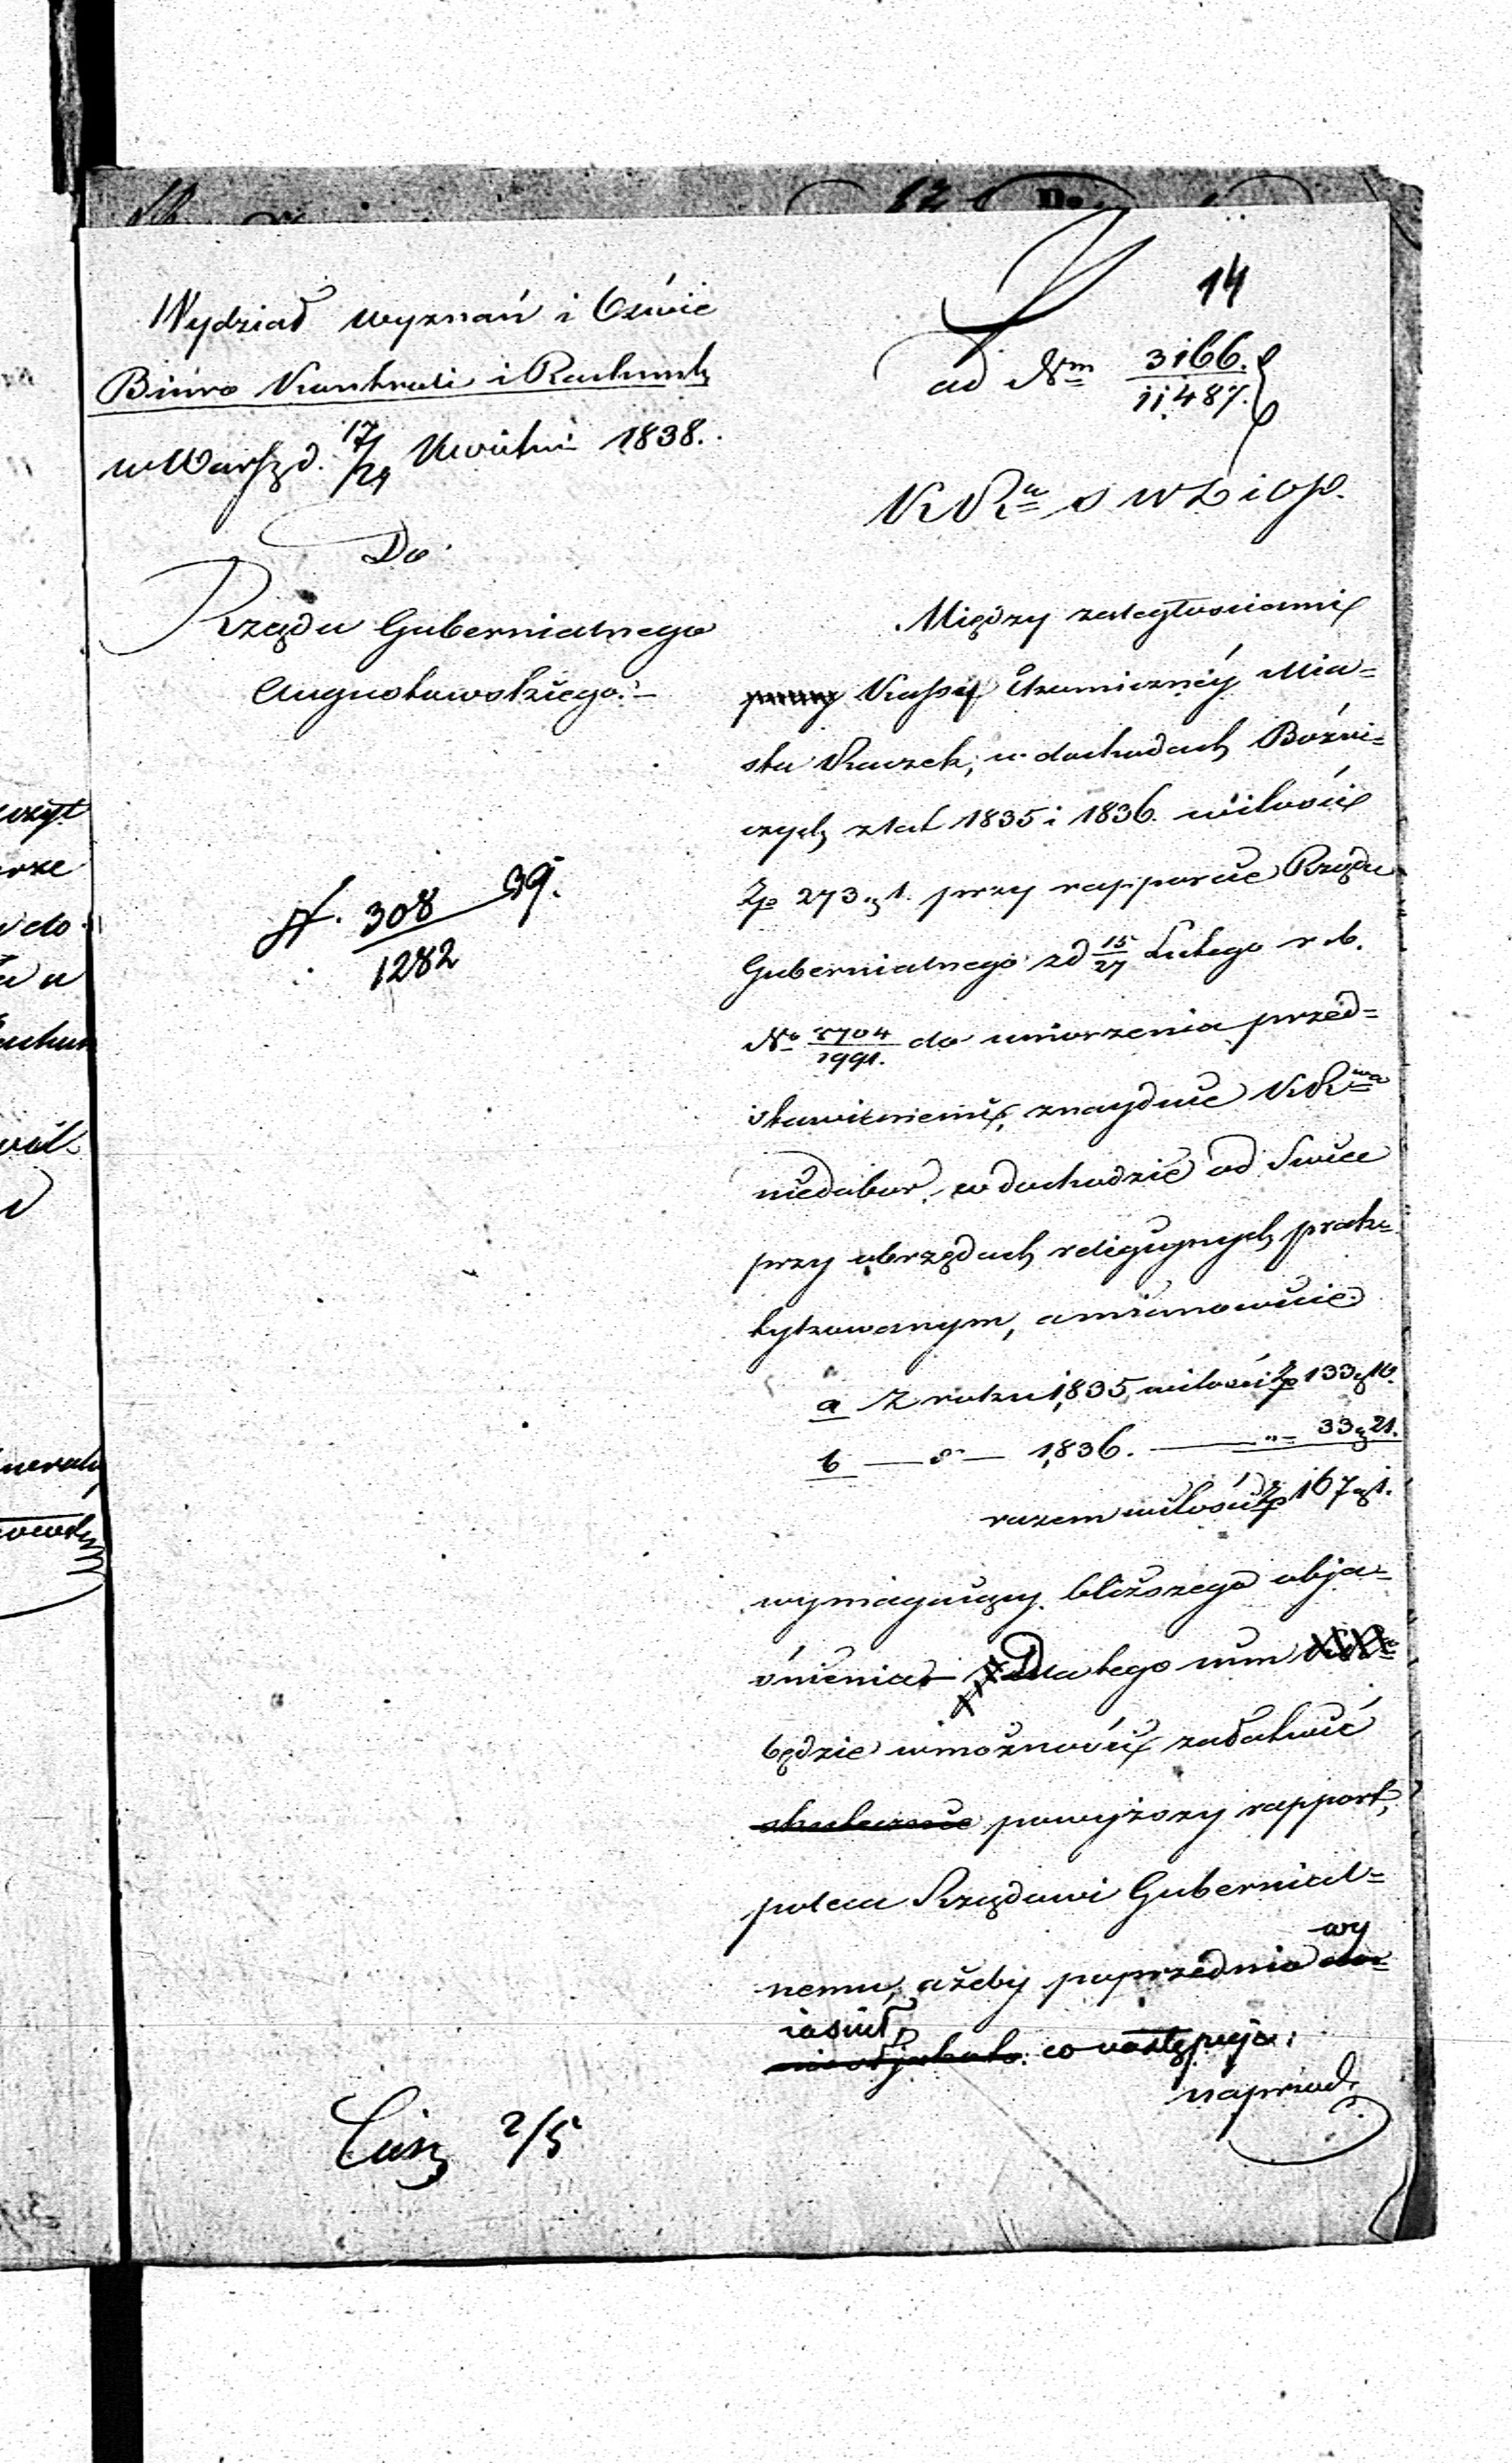 14
Wydział wyznań i Oświe
Biuro Kontroli i Rachunk
w Warsz d. 17/29 Kwietnia 1838.
Do
Rządu Gubernialnego
Augustowskiego.
ad Nrm 3166./11487.
KRa S W D i OP.
Między zaległościami
Kassy Ekonomicznéy Mia=
sta Raczek, w dochodach Bożni=
czych z lat 1835 i 1836. w ilości
Zp 273 g 1. przy rapporcie Rządu
Gubernialnego z d 15/27 Lutego r. b.
No 5704/1991. do umorzenia przed=
stawionemi, znayduie KRwa
niedobor, w dochodzie od Swiec
przy obrzędach religiynych prak=
tykowanym, a mianowicie
a Z roku 1835 w ilości Zp 133 g 10.
b — d° — 1836. — „ = 33 g 21.
razem w ilości Zp 167 g 1.
wymagaiący bliższego obja=
śnienia Dla tego nim
będzie w możności załatwić
skutecznie powyższy rapport,
poleca Rządowi Gubernial=
nemu, ażeby poprzednio wy
iaśnił, co następuje:
naprzod.
N. 308/1282 39.
2/5